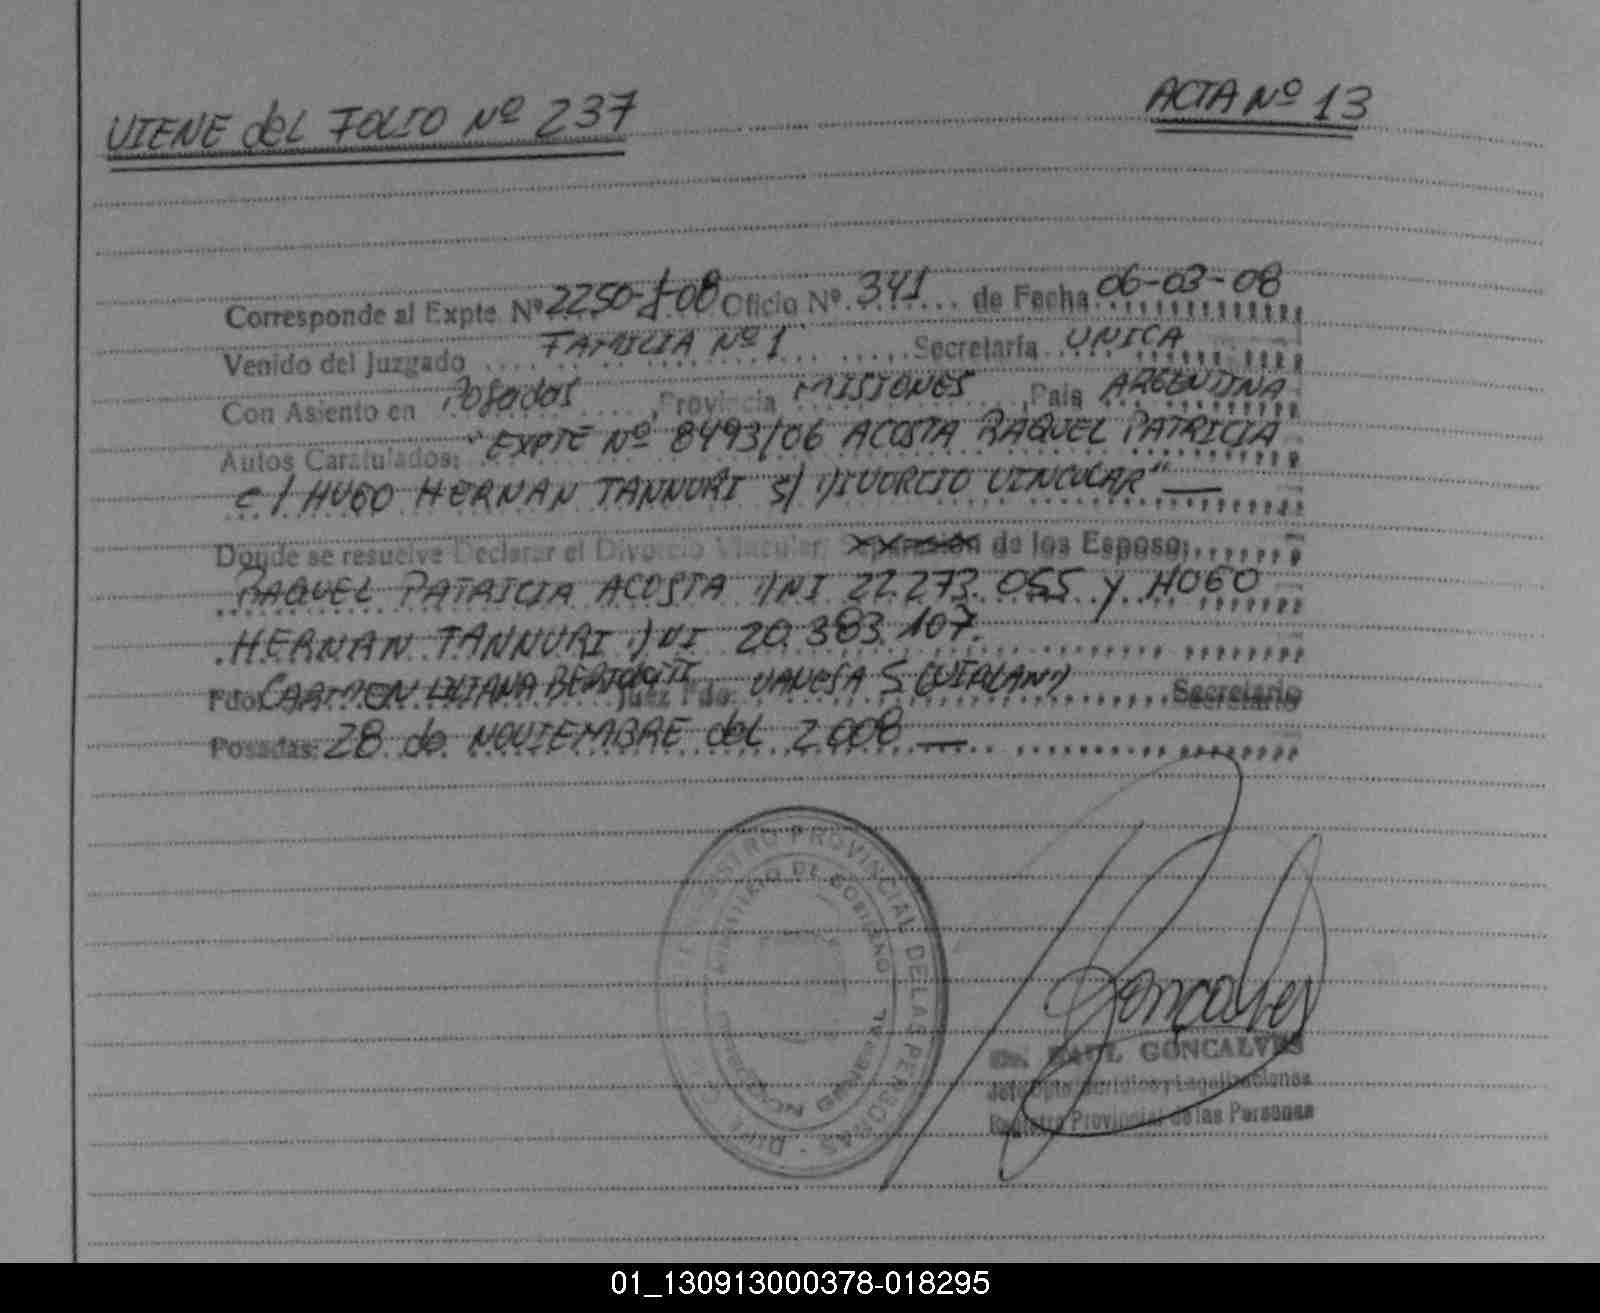 VIENE del FOLIO Nº 237
ACTA Nº 13
Corresponde al Expte. Nº 2250-J-08 Oficio Nº 341 de Fecha 06-03-08
Venido del Juzgado FAMILIA Nº 1 Secretaría UNICA
Con Asiento en Posadas, Provincia MISIONES, Pais ARGENTINA
Autos Caratulados: "EXPTE Nº 8493/06 ACOSTA RAQUEL PATRICIA
c/ HUGO HERNAN TANNURI S/ DIVORCIO VINCULAR"
Donde se resuelve Declarar el Divorcio Vincular, de los Esposo;
RAQUEL PATRICIA ACOSTA DNI 22.273.055 y HUGO
HERNAN TANNURI DNI 20.383.107.
Fdo. CARMEN LILIANA Juez Fdo. VANESA S Secretario
Posadas: 28 de NOVIEMBRE del 2.008
REGISTRO PROVINCIAL DE LAS PERSONAS
MINISTERIO DE GOBIERNO
Goncalves
Dr. RAUL GONCALVES
Jefe Dpto. Jurídico y Legalizaciones
Registro Provincial de las Personas
01_130913000378-018295